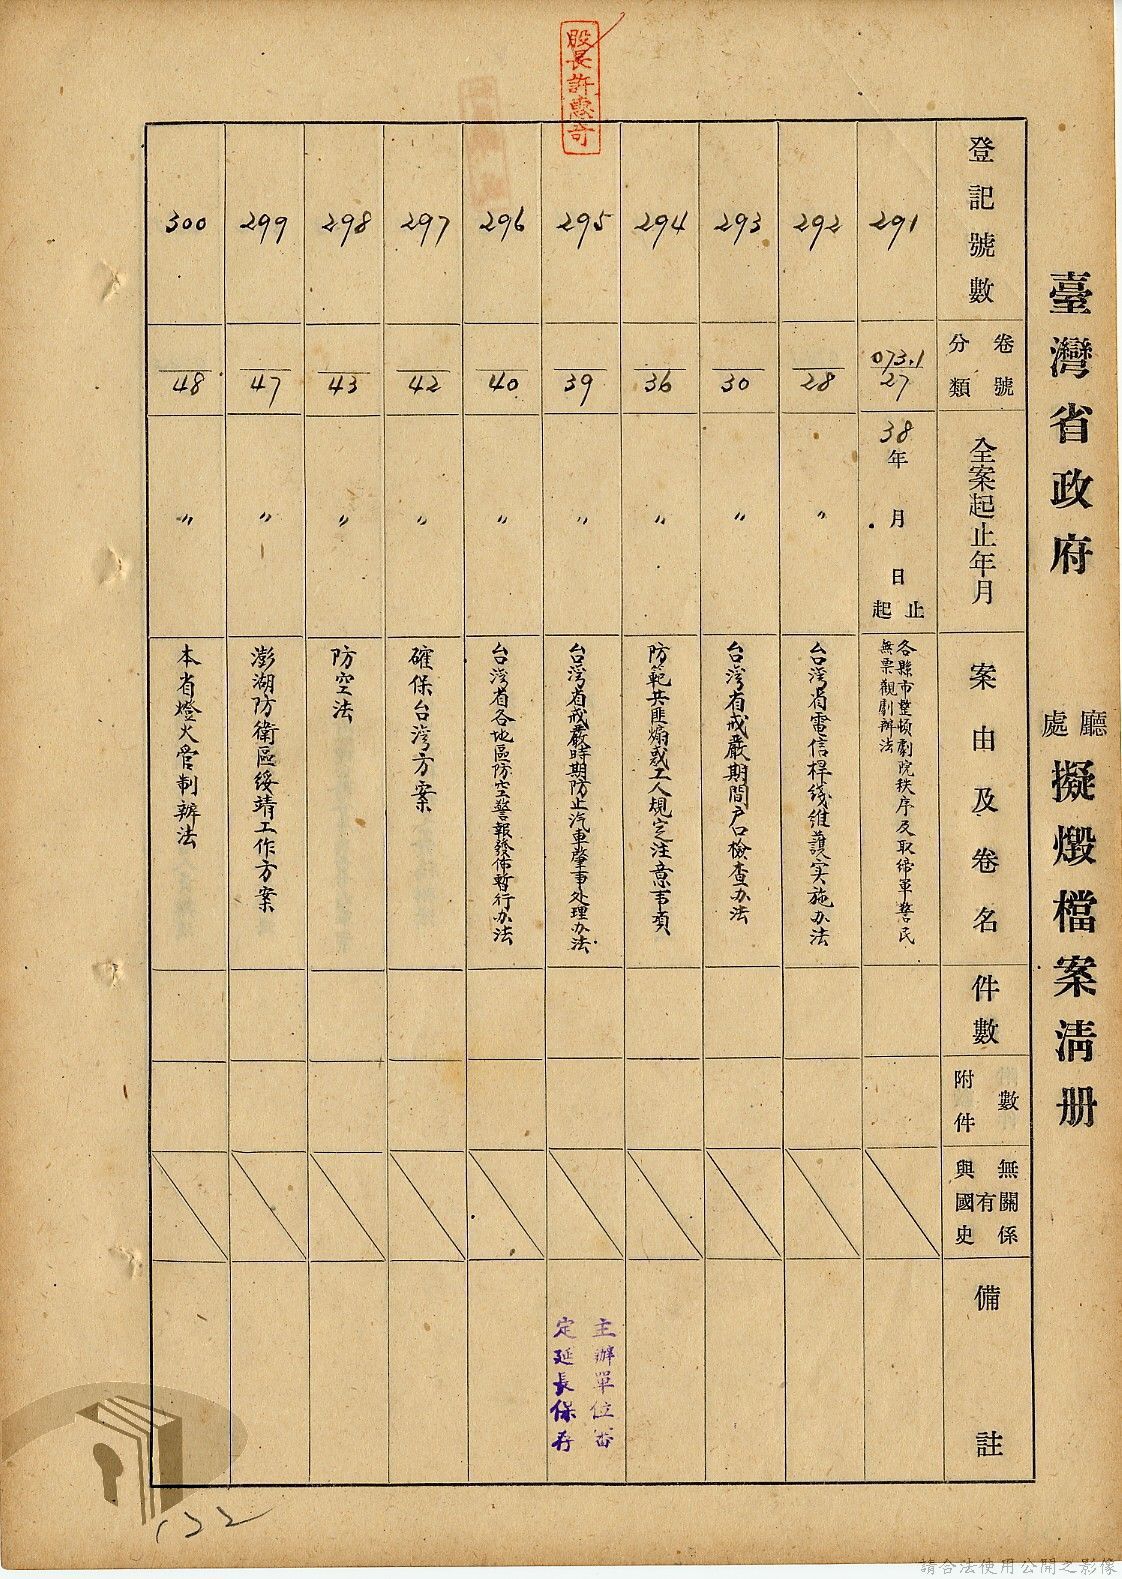 股長許惠奇
臺灣省政府
廳處
擬燬檔案淸册
登記號數
卷號
分類
全案起止年月
案由及卷名
件數
附件數
無關係
有
與國史
備註
291
073.1
27
38年月日
起止
各縣市整頓劇院秩序及取締軍警民
無票觀劇辦法
292
28
〃
台灣省電信桿綫維護实施办法
293
30
〃
台灣省戒嚴期間户口檢查办法
294
36
〃
防範共匪煽惑工人規定注意事項
295
39
〃
台灣省戒嚴時期防止汽車肇事处理办法
主辦單位審
定延長保存
296
40
〃
台灣省各地區防空警報發佈暫行办法
297
42
〃
確保台灣方案
298
43
〃
防空法
299
47
〃
澎湖防衛區綏靖工作方案
300
48
〃
本省燈火管制辦法
122
請合法使用公開之影像